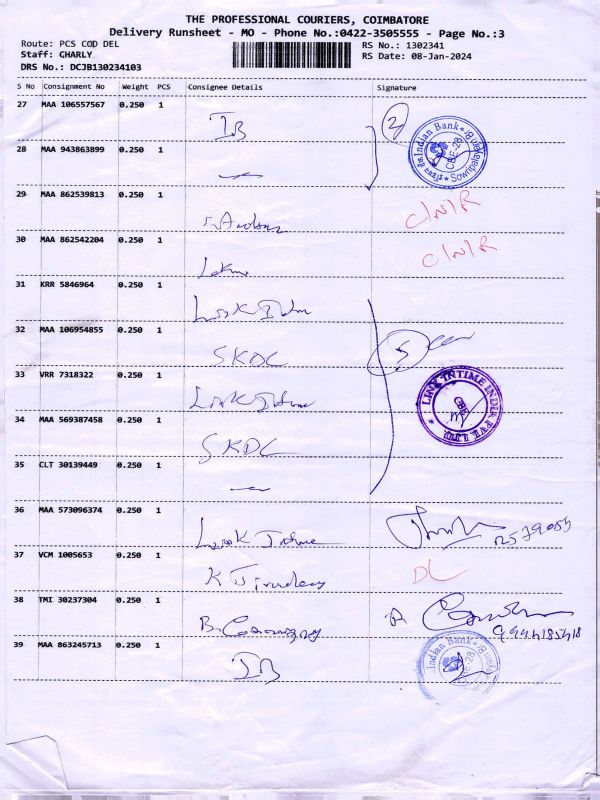 THE PROFESSIONAL COURIERS, COIMBATORE
Delivery Runsheet - MO - Phone No.:0422-3505555 - Page No.:3
Route: PCS COD DEL RS No.: 1302341
Staff: CHARLY RS Date: 08-Jan-2024
DRS No.: DCJB130234103
S No Consignment No Weight PCS Consignee Details Signature
27 MAA 106557567 0.250 1 IB 2
28 MAA 943863899 0.250 1
Indian Bank
29 MAA 862539813 0.250 1 C/N/R
30 MAA 862542204 0.250 1 C/N/R
31 KRR 5846964 0.250 1 Link
32 MAA 106954855 0.250 1 SKDC 5
33 VRR 7318322 0.250 1 Link
LINK INTIME INDIA PVT. LTD.
CBE
34 MAA 569387458 0.250 1 SKDC
35 CLT 30139449 0.250 1
36 MAA 573096374 0.250 1 Link
37 VCM 1005653 0.250 1 K DL
38 TMI 30237304 0.250 1 B.
39 MAA 863245713 0.250 1 IB
Indian Bank